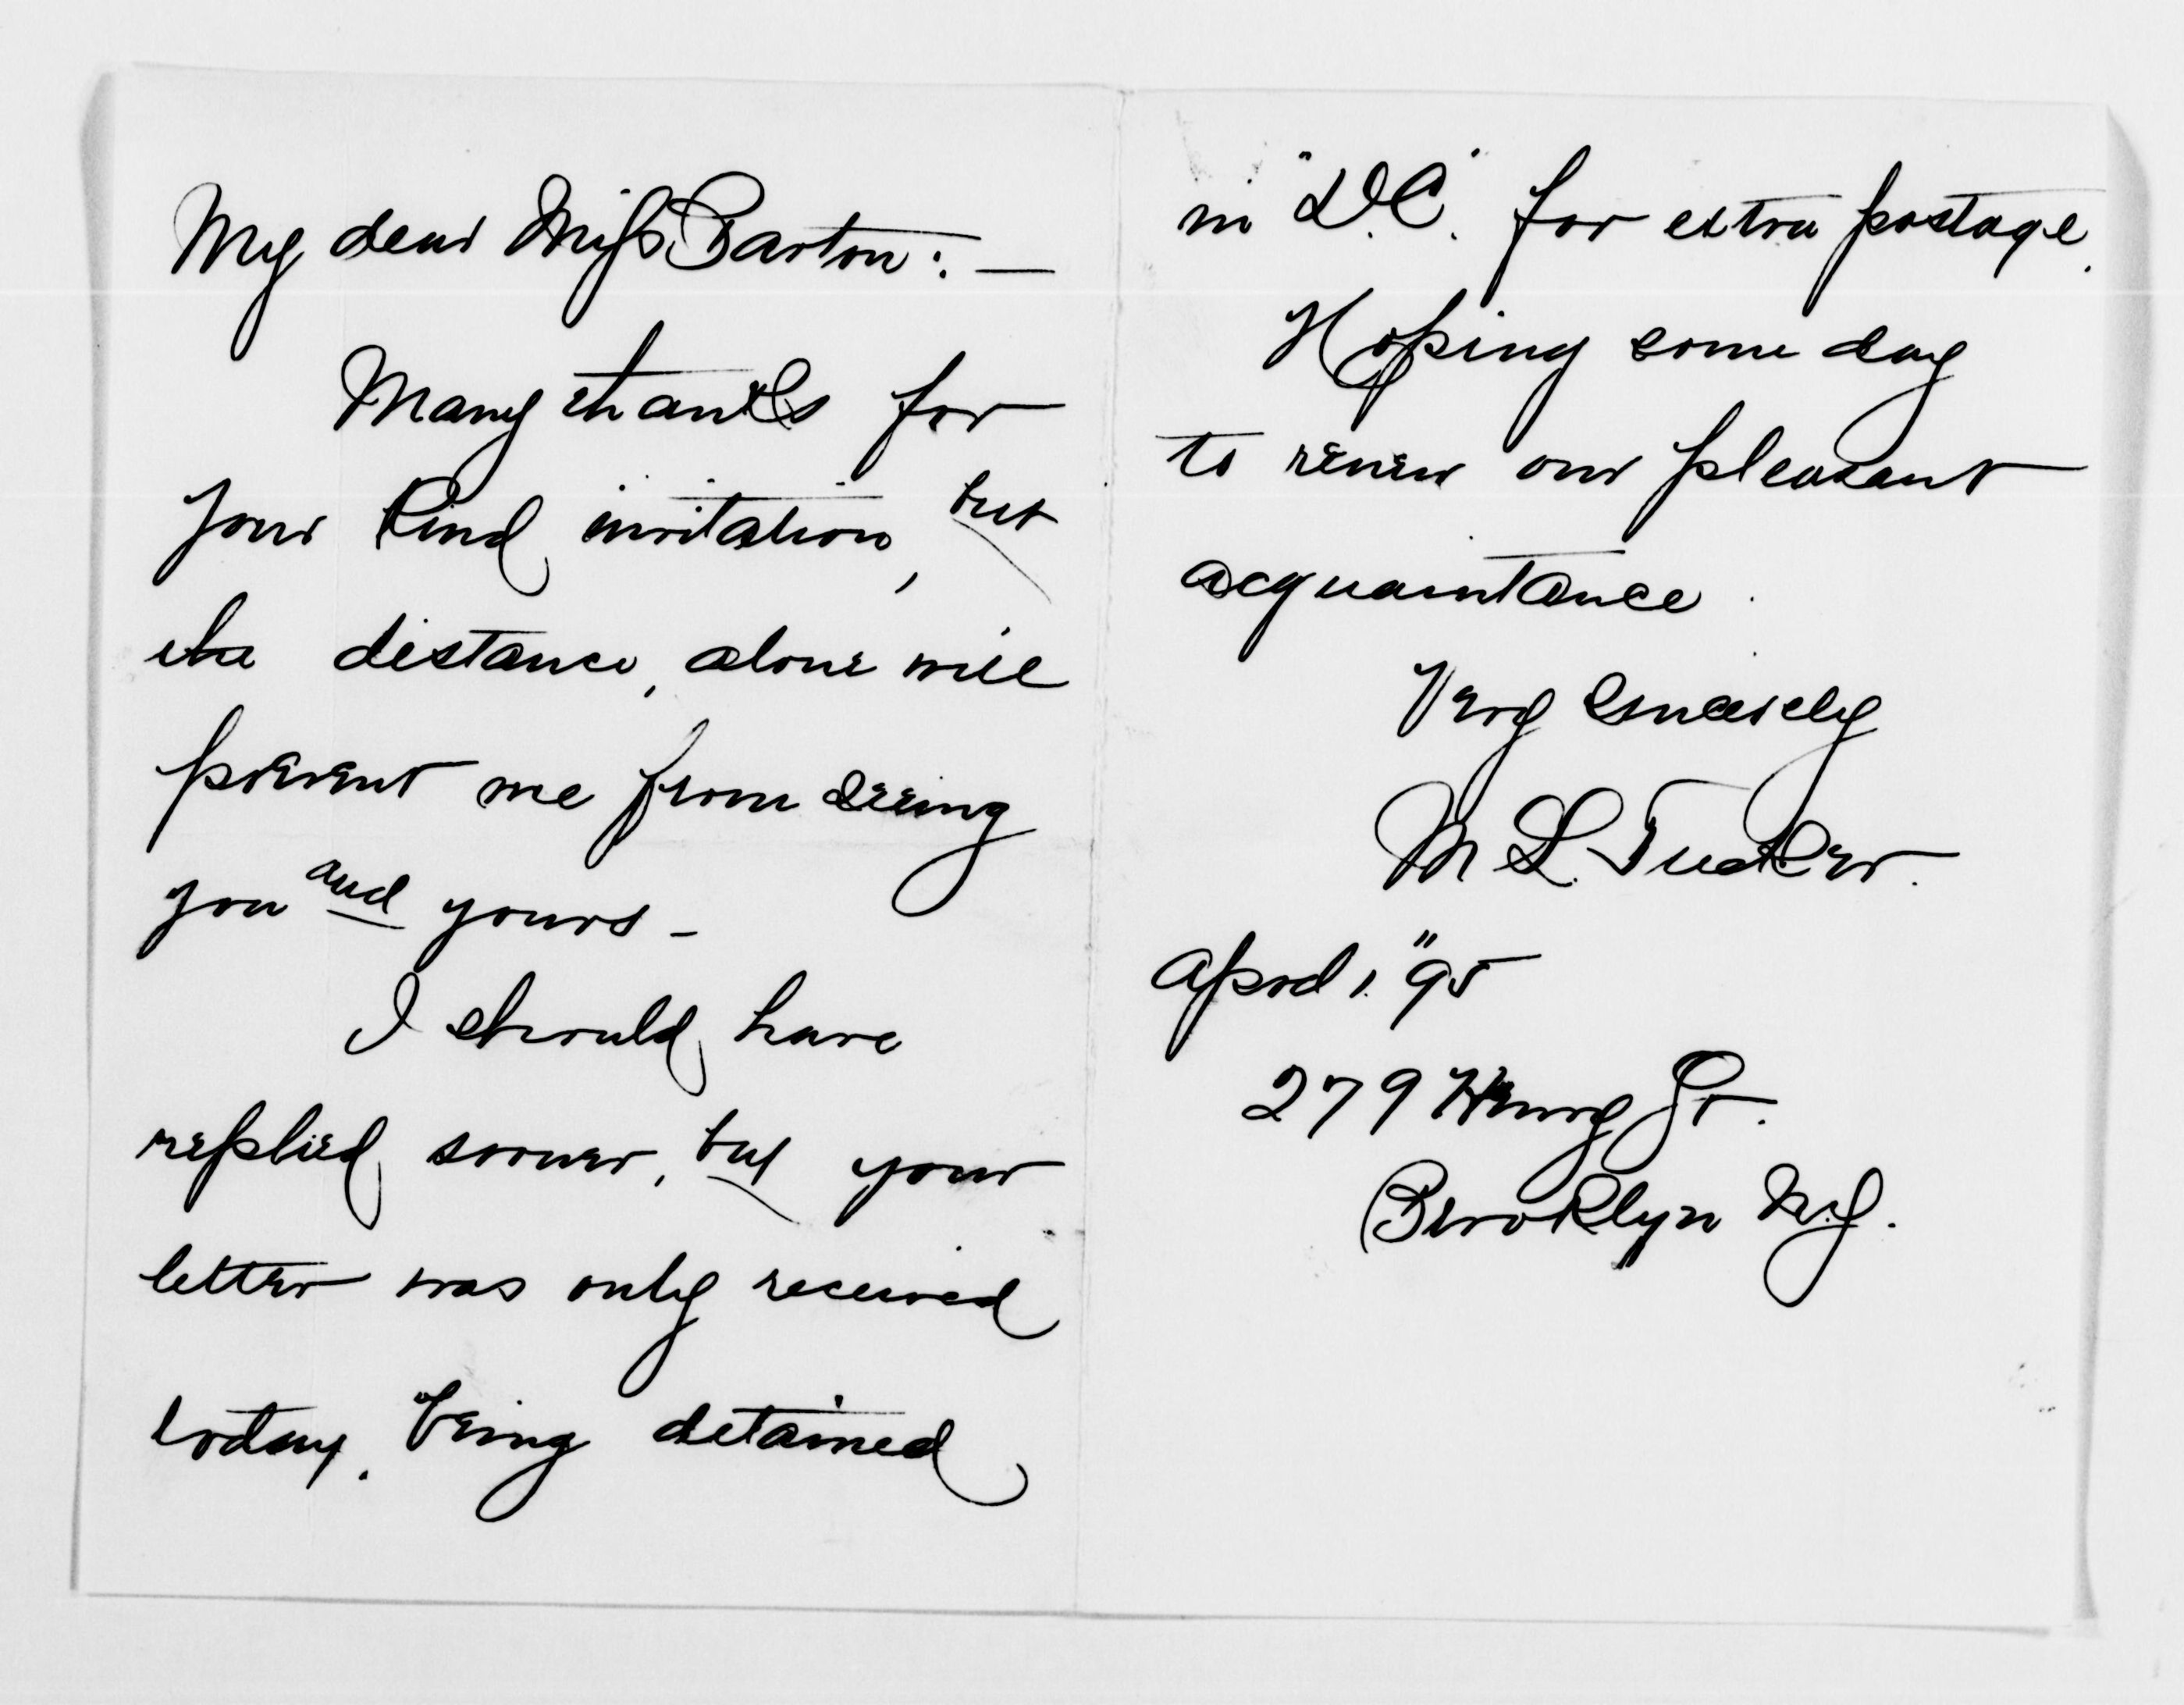 My dear Miss Barton:—
Many thanks for
your kind invitation, but
the distance, alone will
prevent me from seeing
you and yours—
I should have
replied sooner, but your
letter was only received
today. being detained
in "D.C." for extra postage.
Hoping some day
to renew our pleasant
acquaintance.
Very sincerely
M L. Tucker.
April 1. "95
279 Henry St.
Brooklyn N.Y.